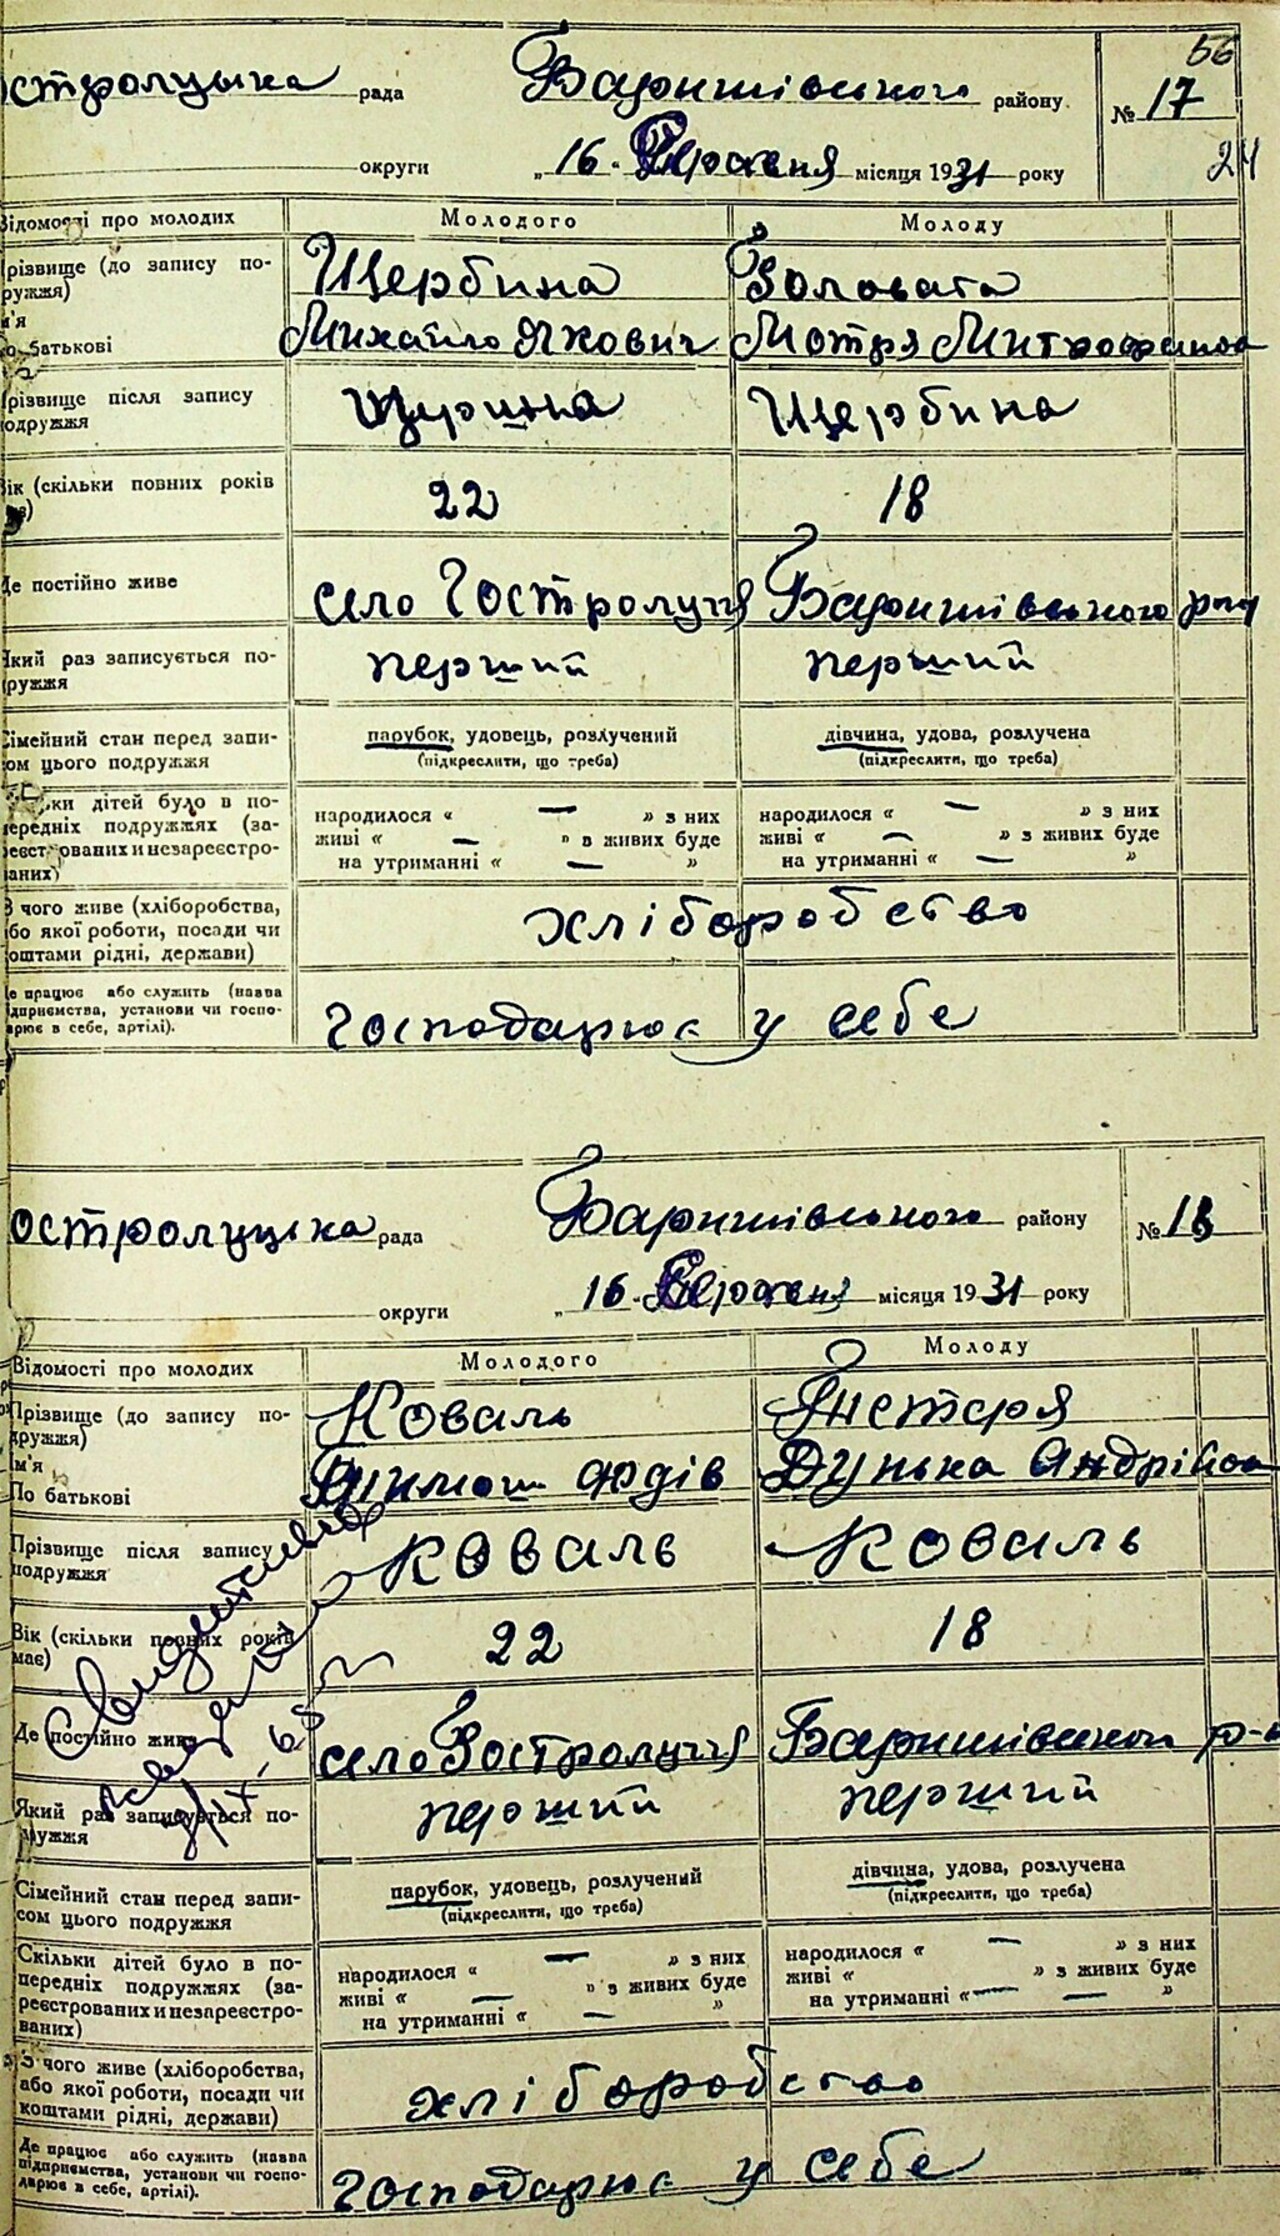 56
остролуцька рада Баришівського району № 17
округи „ 16 " Червня місяця 1931 року
24
Відомості про молодих Молодого Молоду
прізвище (до запису по-
ружжя) Щербина Головата
м'я
о батькові Михайло Якович Мотря Митрофанов
різвище після запису
одружжя Щербина
Вік (скільки повних років 22 18
Де постійно живе село Гостролуччя Баришівського р-ну
Який раз записується по-
дружжя перший перший
Сімейний стан перед запи-
сом цього подружжя парубок, удовець, розлучений дівчина, удова, розлучена
(підкреслити, що треба) (підкреслити, що треба)
ки дітей було в по-
передніх подружжях (за-
реєстрованих и незареєстро-
ваних)
народилося « — » з них народилося « — » з них
живі « — » в живих буде живі « — » з живих буде
на утриманні « — » на утриманні « — »
З чого живе (хліборобства,
або якої роботи, посади чи
коштами рідні, держави) хліборобство
Де працює або служить (назва
підприємства, установи чи госпо-
дарює в себе, артілі). Господарює у себе
остролуцька рада Баришівського району № 18
округи „ 16 " Червня місяця 1931 року
Відомості про молодих Молодого Молоду
Прізвище (до запису по-
дружжя) Коваль
Ім'я
По батькові Дунька Андріївна
Прізвище після запису
подружжя Коваль Коваль
Вік (скільки повних років
має) 22 18
Де постійно живе село Гостролуччя Баришівського р-
Який раз записується по-
дружжя перший перший
Сімейний стан перед запи-
сом цього подружжя парубок, удовець, розлучений дівчина, удова, розлучена
(підкреслити, що треба) (підкреслити, що треба)
Скільки дітей було в по-
передніх подружжях (за-
реєстрованих и незареєстро-
ваних)
народилося « — » з них народилося « — » з них
живі « — » з живих буде живі « » з живих буде
на утриманні « — » на утриманні « — »
З чого живе (хліборобства,
або якої роботи, посади чи
коштами рідні, держави) хліборобство
Де працює або служить (назва
підприємства, установи чи госпо-
дарює в себе, артілі). Господарює у себе